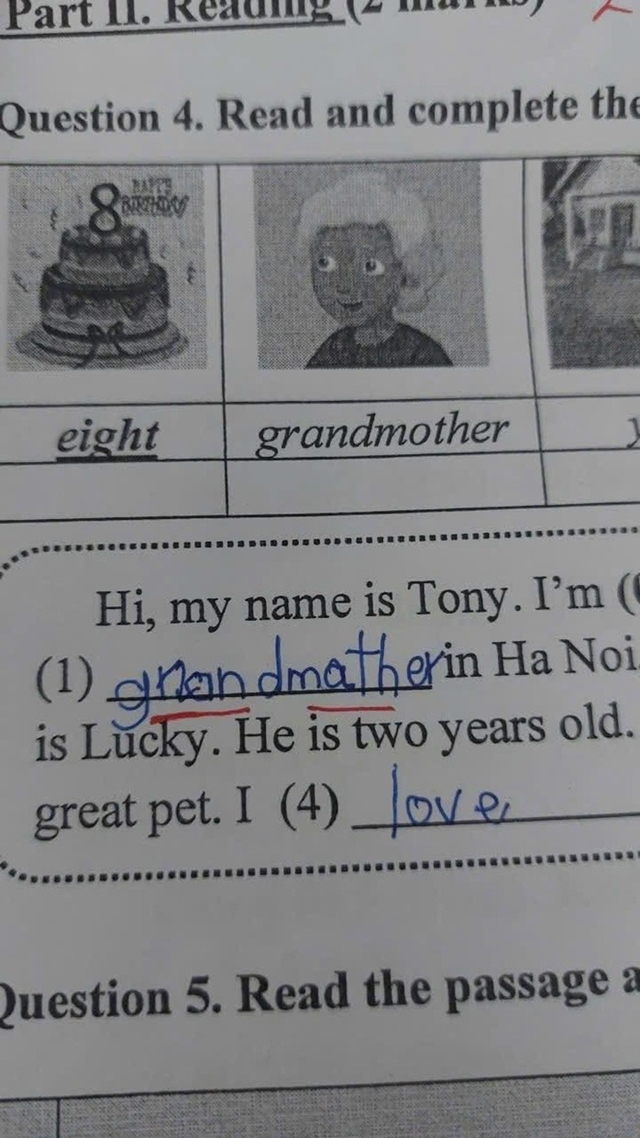 Part II. Reading (2 marks)
Question 4. Read and complete the
8 HAPPY
BIRTHDAY
eight grandmother y
Hi, my name is Tony. I'm (
(1) grandmather in Ha Noi.
is Lucky. He is two years old.
great pet. I (4) love
Question 5. Read the passage a